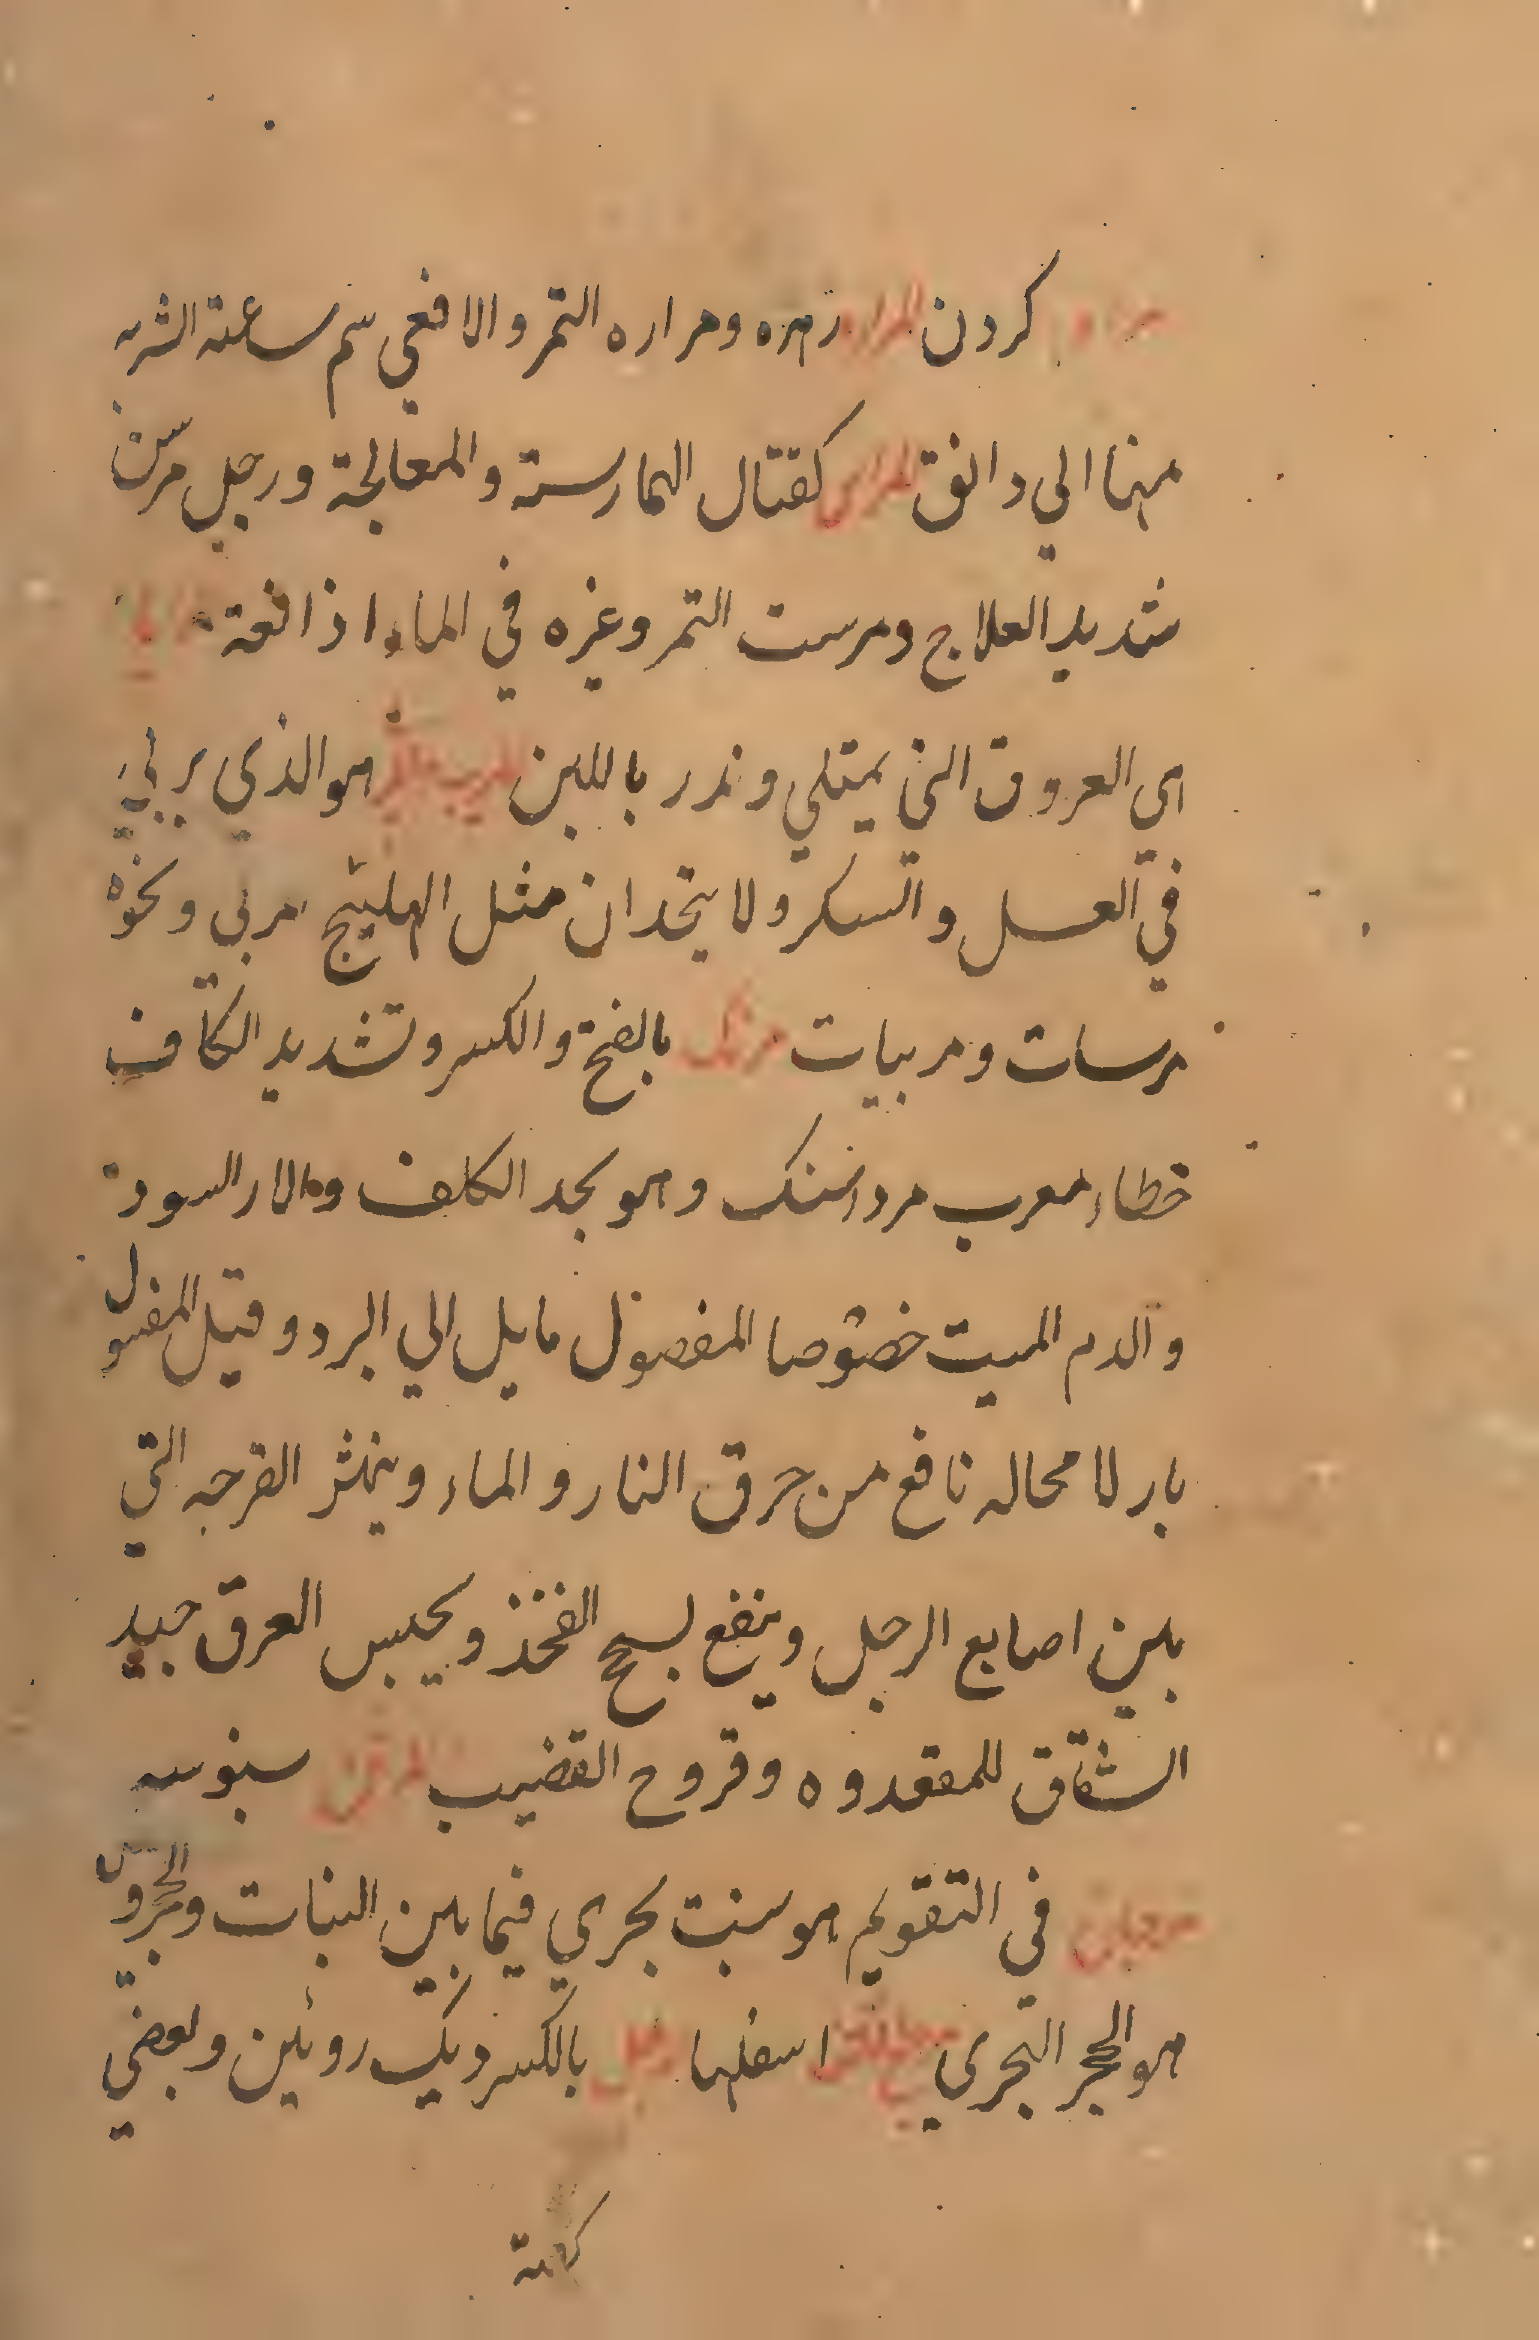 كردن المراره زهره ومراره التمر والافعي سم ساعته الشربه
منها الي دانق المراس كقتال الممارسته والمعالجة ورجل مرس
شديد العلاج ومرست التمر وغيره في الماء اذا نقعته
اي العروق التي يمتلي وندر باللبن هو الذي يربي
في العسل والسكر ولا يتخدان مثل الهليلج مربي ونحوه
مرسات ومربيات مرتك بالفتح والكسر وتشديد الكاف
خطاء معرب مرداسنك وهو يجد الكلف والاثار السود
والدم الميت خصوصا المغسول مايل الي البرد وقيل المغسول
بارد لا محاله نافع من حرق النار والماء وينثر القرحه التي
بين اصابع الرجل وينفع لسحج الفخذ ويحبس العرق جيد
الشقاق للمقعدوه وقروح القضيب سبوسه
مرجان في التقويم هو سنبت بحري فيما بين النبات والحجر و
هو الحجر البحري اسفلها مرجل بالكسر ديك روئين وبعضي
كفته